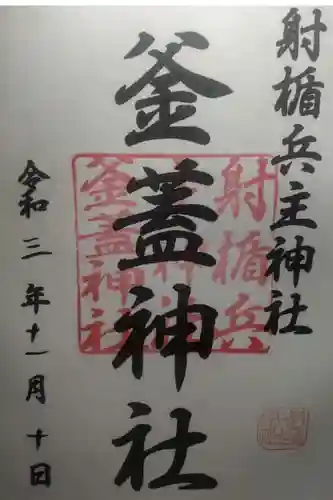 射楯兵主神社
釜蓋神社
令和三年十一月十日
射楯兵
釜蓋神社